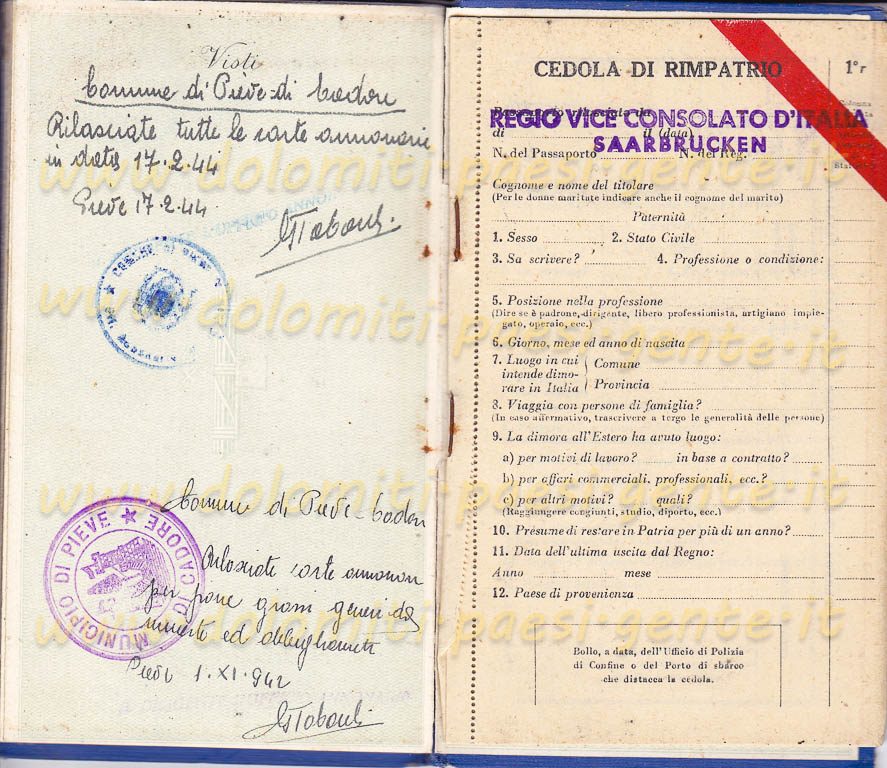 Visti
Comune di Pieve di Cadore
Rilasciate tutte le carte annonarie
in data 17.2.44
Pieve 17.2.44
Comune di Pieve-Cadore
Rilasciate carte annonarie
per pane grassi generi da
minestra ed abbigliamento
Pieve 1.XI.942
MUNICIPIO DI PIEVE ★ DI CADORE
CEDOLA DI RIMPATRIO
1°r
REGIO VICE CONSOLATO D'ITALIA
di il (data)
SAARBRUCKEN
N. del Passaporto N. del Reg.
Cognome e nome del titolare
(Per le donne maritate indicare anche il cognome del marito)
Paternità
1. Sesso 2. Stato Civile
3. Sa scrivere? 4. Professione o condizione:
5. Posizione nella professione
(Dire se è padrone, dirigente, libero professionista, artigiano impie-
gato, operaio, ecc.)
6. Giorno, mese ed anno di nascita
7. Luogo in cui
intende dimo-
rare in Italia
Comune
Provincia
8. Viaggia con persone di famiglia?
(In caso affermativo, trascrivere a tergo le generalità delle persone)
9. La dimora all'Estero ha avuto luogo:
a) per motivi di lavoro? in base a contratto?
b) per affari commerciali, professionali, ecc.?
c) per altri motivi? quali?
(Raggiungere congiunti, studio, diporto, ecc.)
10. Presume di restare in Patria per più di un anno?
11. Data dell'ultima uscita dal Regno:
Anno mese
12. Paese di provenienza
Bollo, a data, dell'Ufficio di Polizia
di Confine o del Porto di sbarco
che distacca la cedola.
www.dolomiti-paesi-gente.it
www.dolomiti-paesi-gente.it
www.dolomiti-paesi-gente.it
www.dolomiti-paesi-gente.it